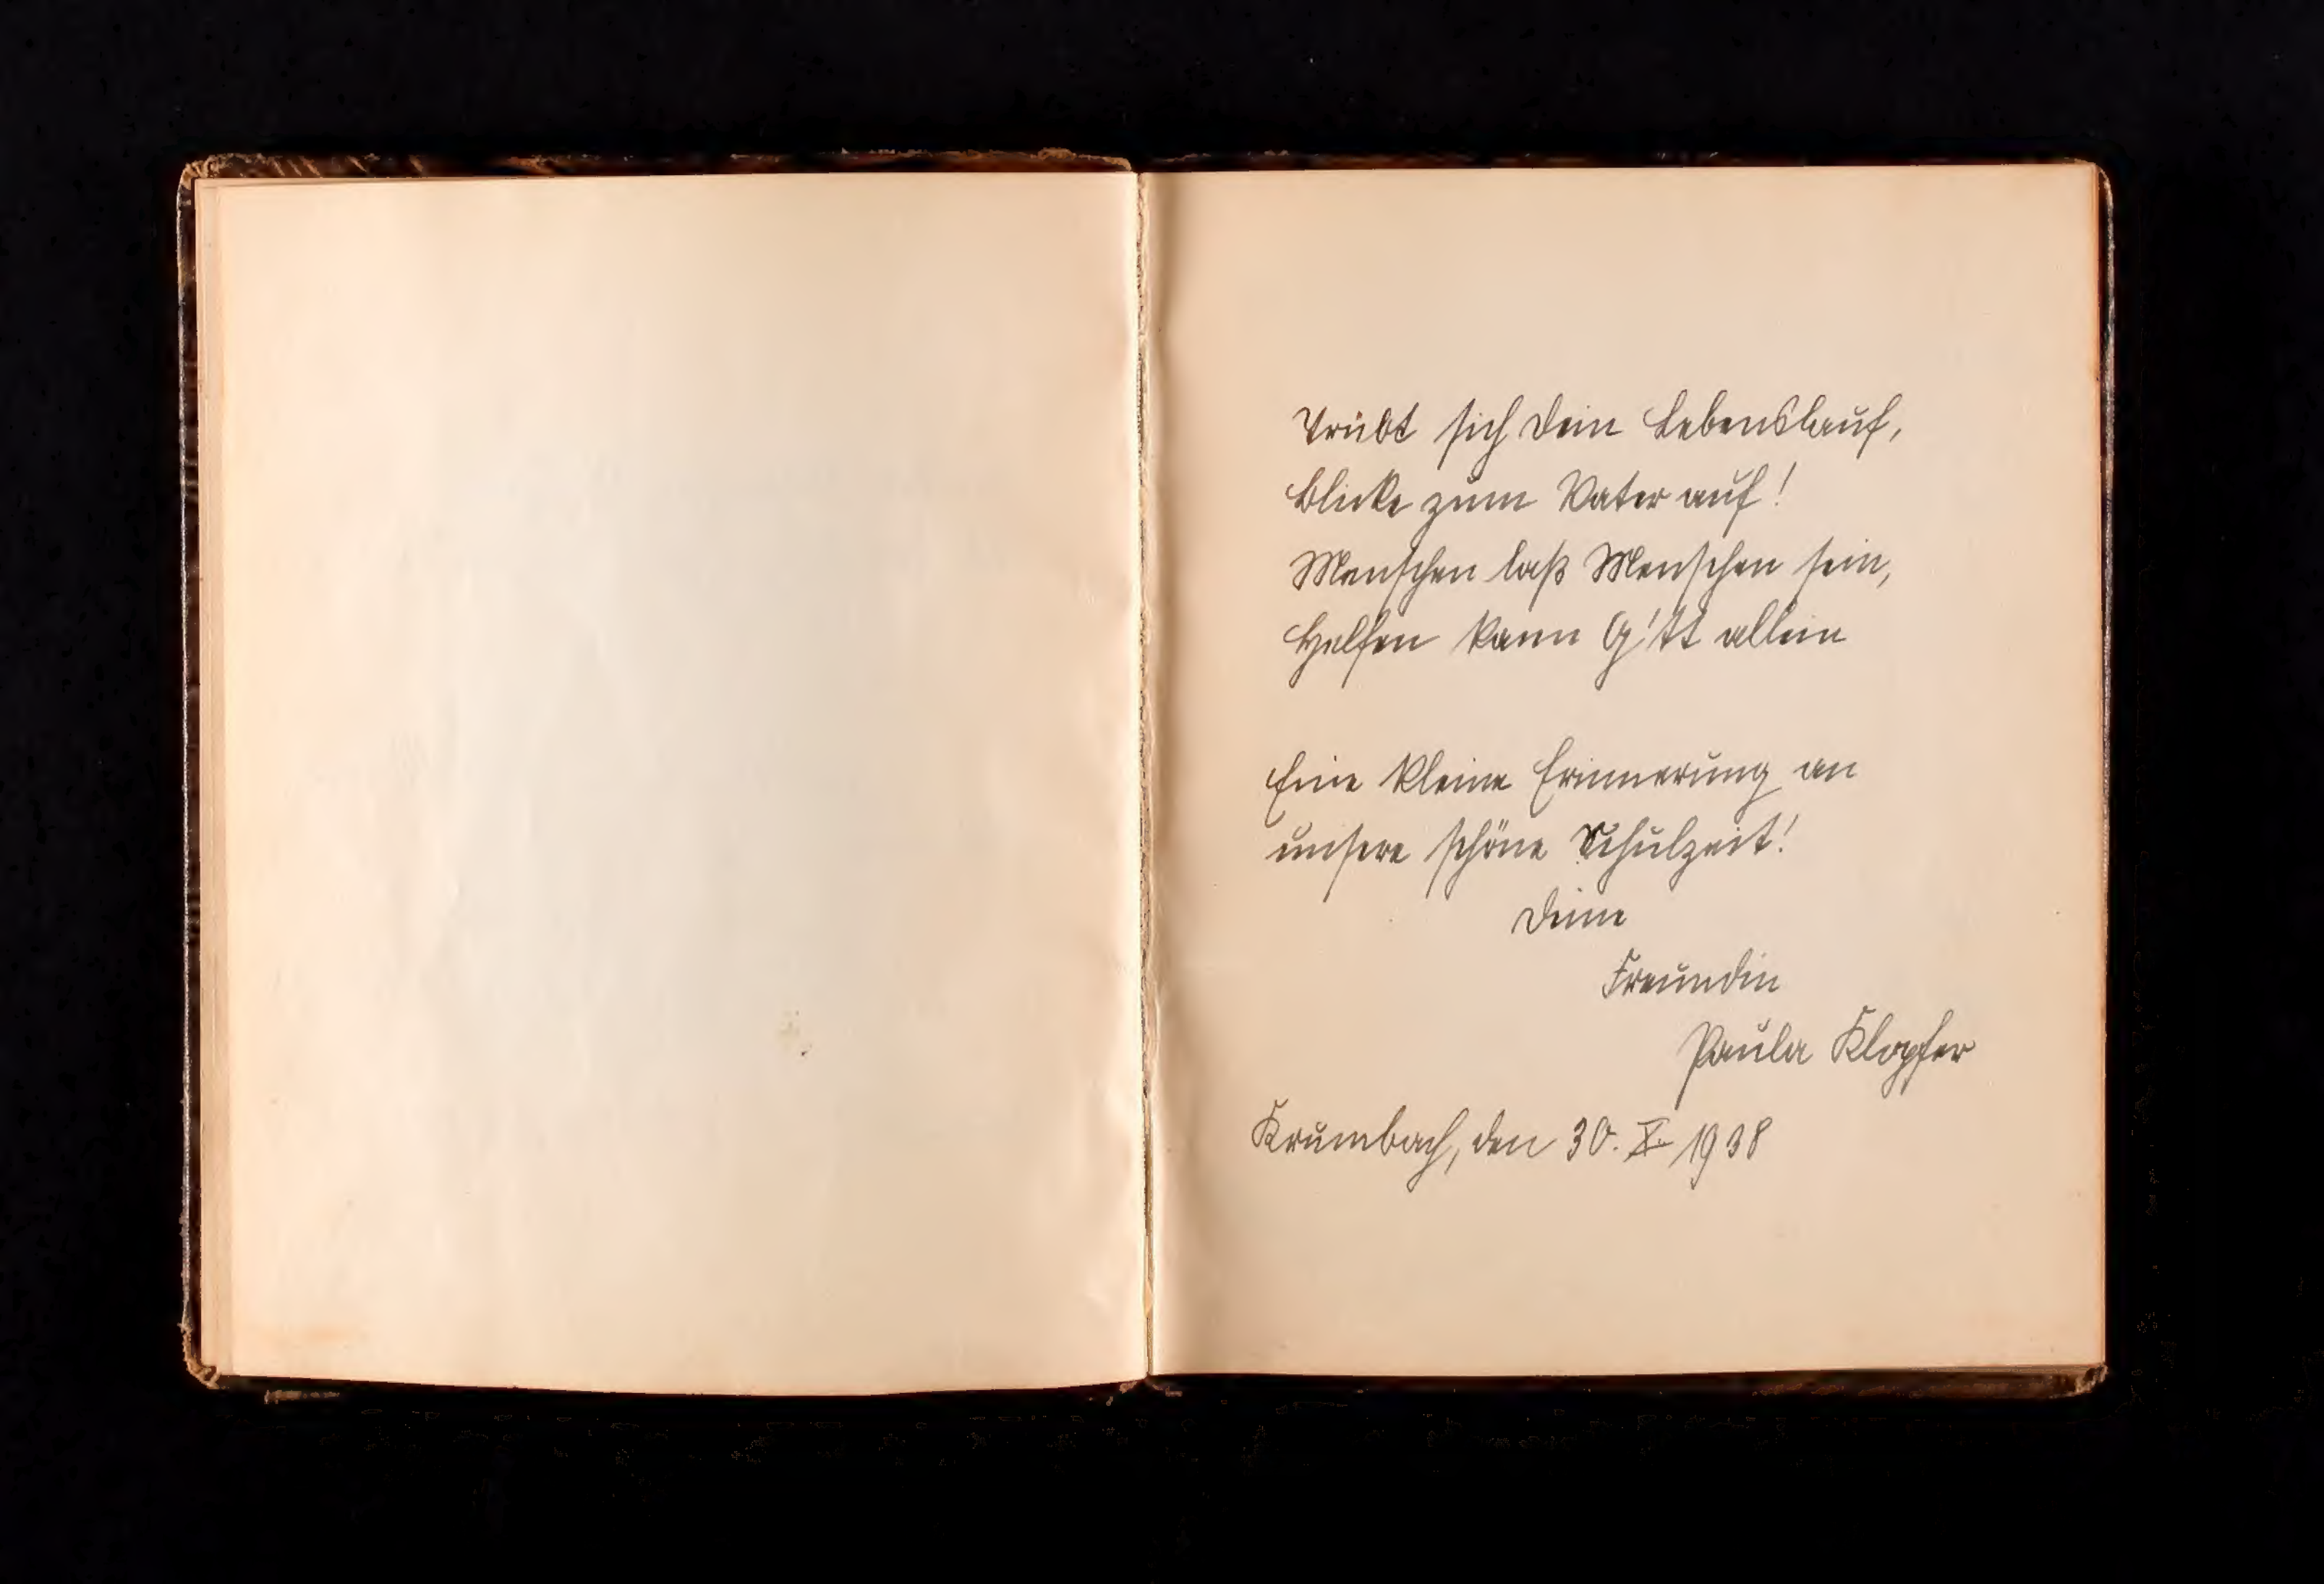 Trübt sich Dein Lebenslauf,
Blicke zum Vater auf!
Menschen laß Menschen sein,
Helfen kann G'tt allein
Eine kleine Erinnerung an
unsere schöne Schulzeit!
Deine
Freundin
Paula Klopfer
Krumbach, den 30. X. 1938